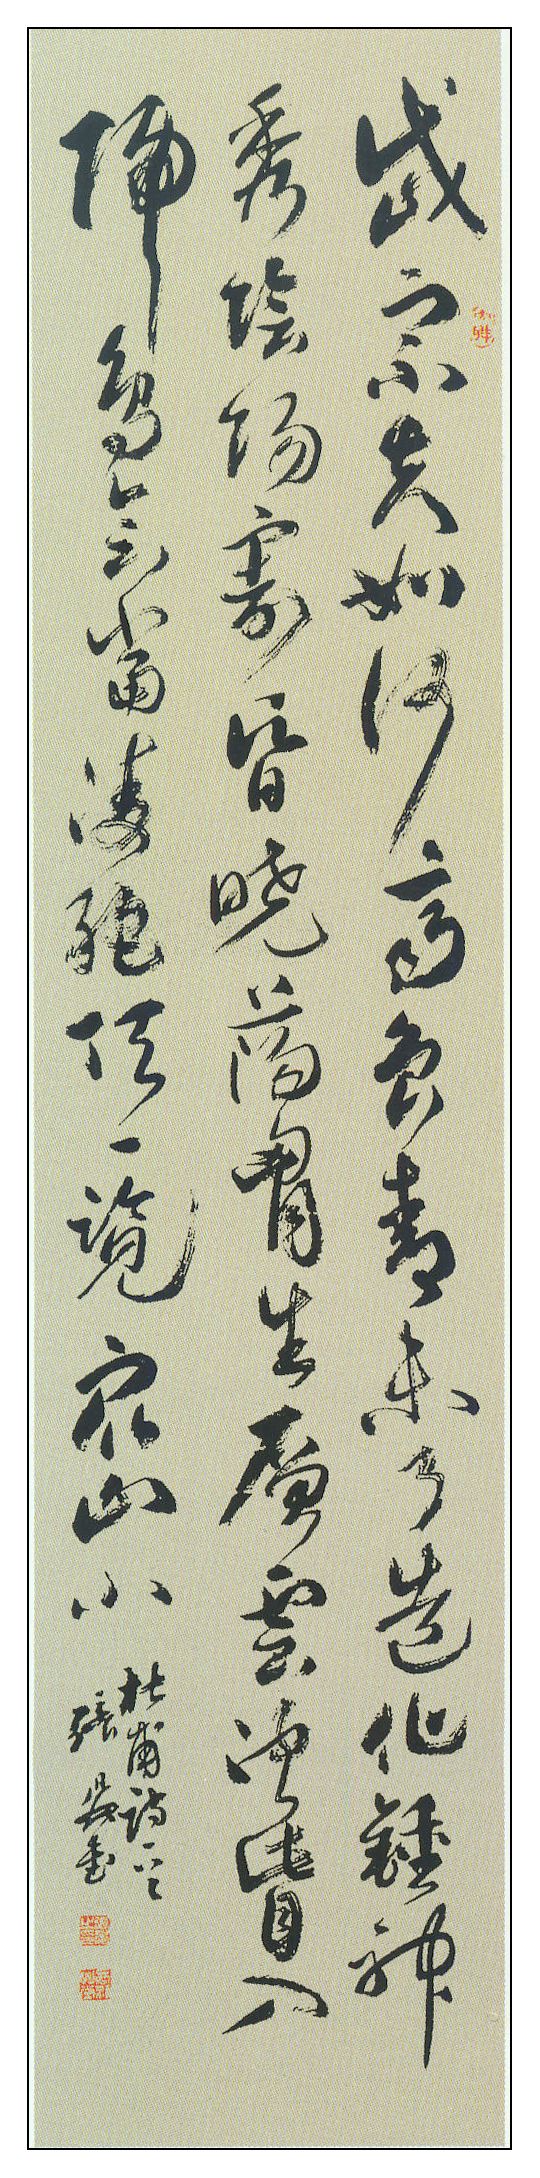 岱宗夫如何齊魯青未了造化鍾神
秀陰陽割昏曉蕩胸生層雲決眥入
歸鳥會當凌絕頂一覽眾山小
杜甫詩一首
張 書